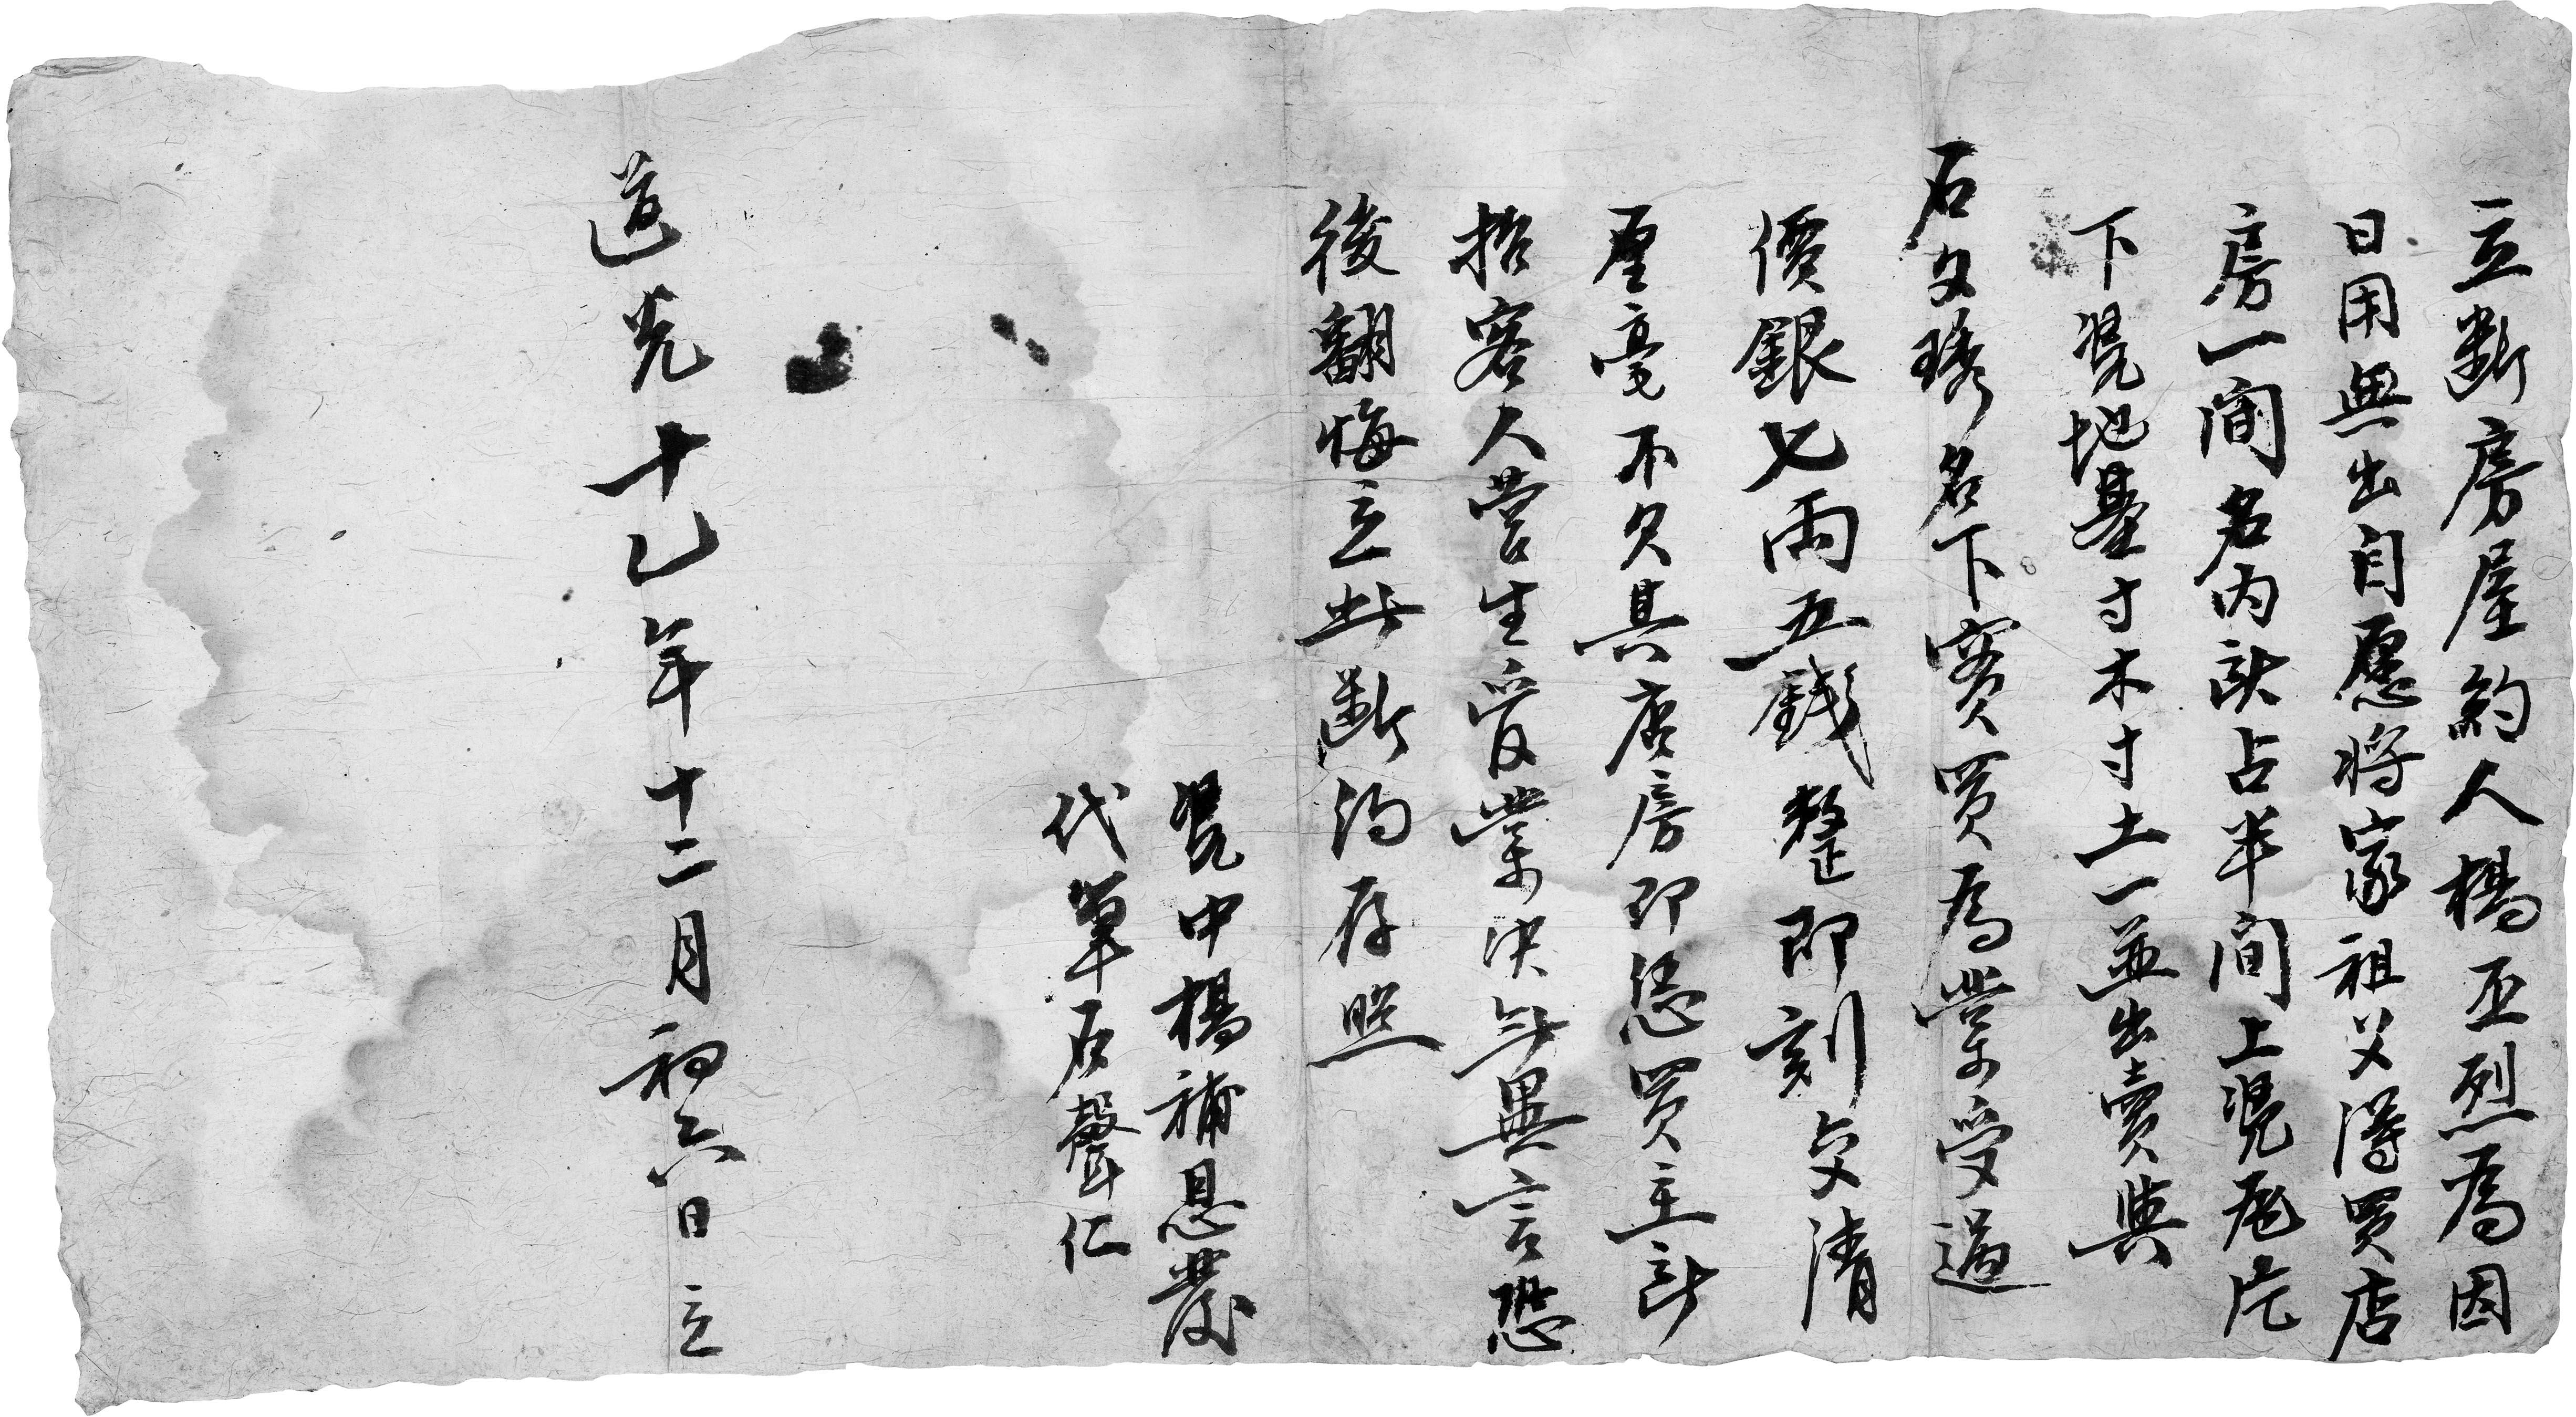 立斷房屋約人楊丕烈為因
日用無出自愿将家祖父得買店
房一間名内趺占半間上凴瓦片
下凴地基寸木寸土一並出賣與
石文琇名下實買為業受過
價銀七両五錢整即刻交清
厘毫不欠其店房即凴買主
招客人營生管業決無異言恐
後翻悔立此斷約存照
凴中楊補恩發
代筆石聲仁
道光十七年十二月初六日立